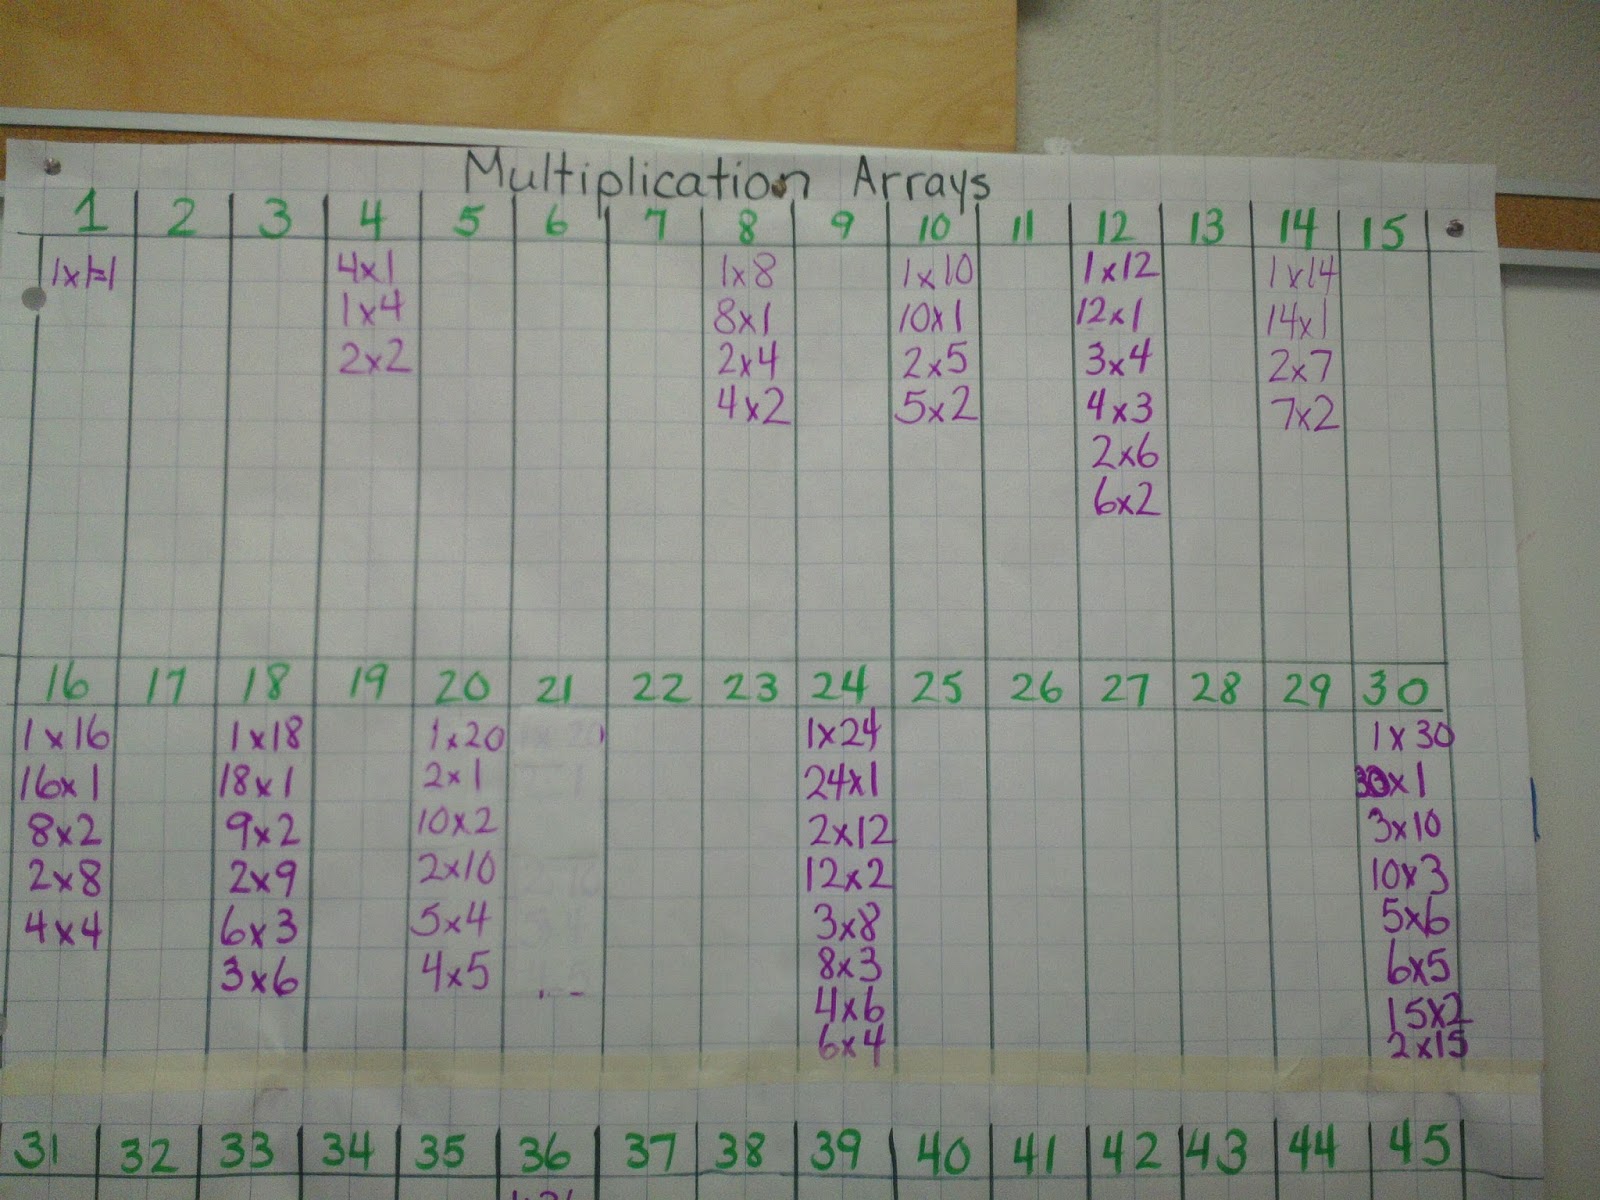 Multiplication Arrays
1 2 3 4 5 6 7 8 9 10 11 12 13 14 15
1x1=1 4x1 1x8 1x10 1x12 1x14
1x4 8x1 10x1 12x1 14x1
2x2 2x4 2x5 3x4 2x7
4x2 5x2 4x3 7x2
2x6
6x2
16 17 18 19 20 21 22 23 24 25 26 27 28 29 30
1x16 1x18 1x20 1x24 1x30
16x1 18x1 2x1 24x1 30x1
8x2 9x2 10x2 2x12 3x10
2x8 2x9 2x10 12x2 10x3
4x4 6x3 5x4 3x8 5x6
3x6 4x5 8x3 6x5
4x6 15x2
6x4 2x15
31 32 33 34 35 36 37 38 39 40 41 42 43 44 45